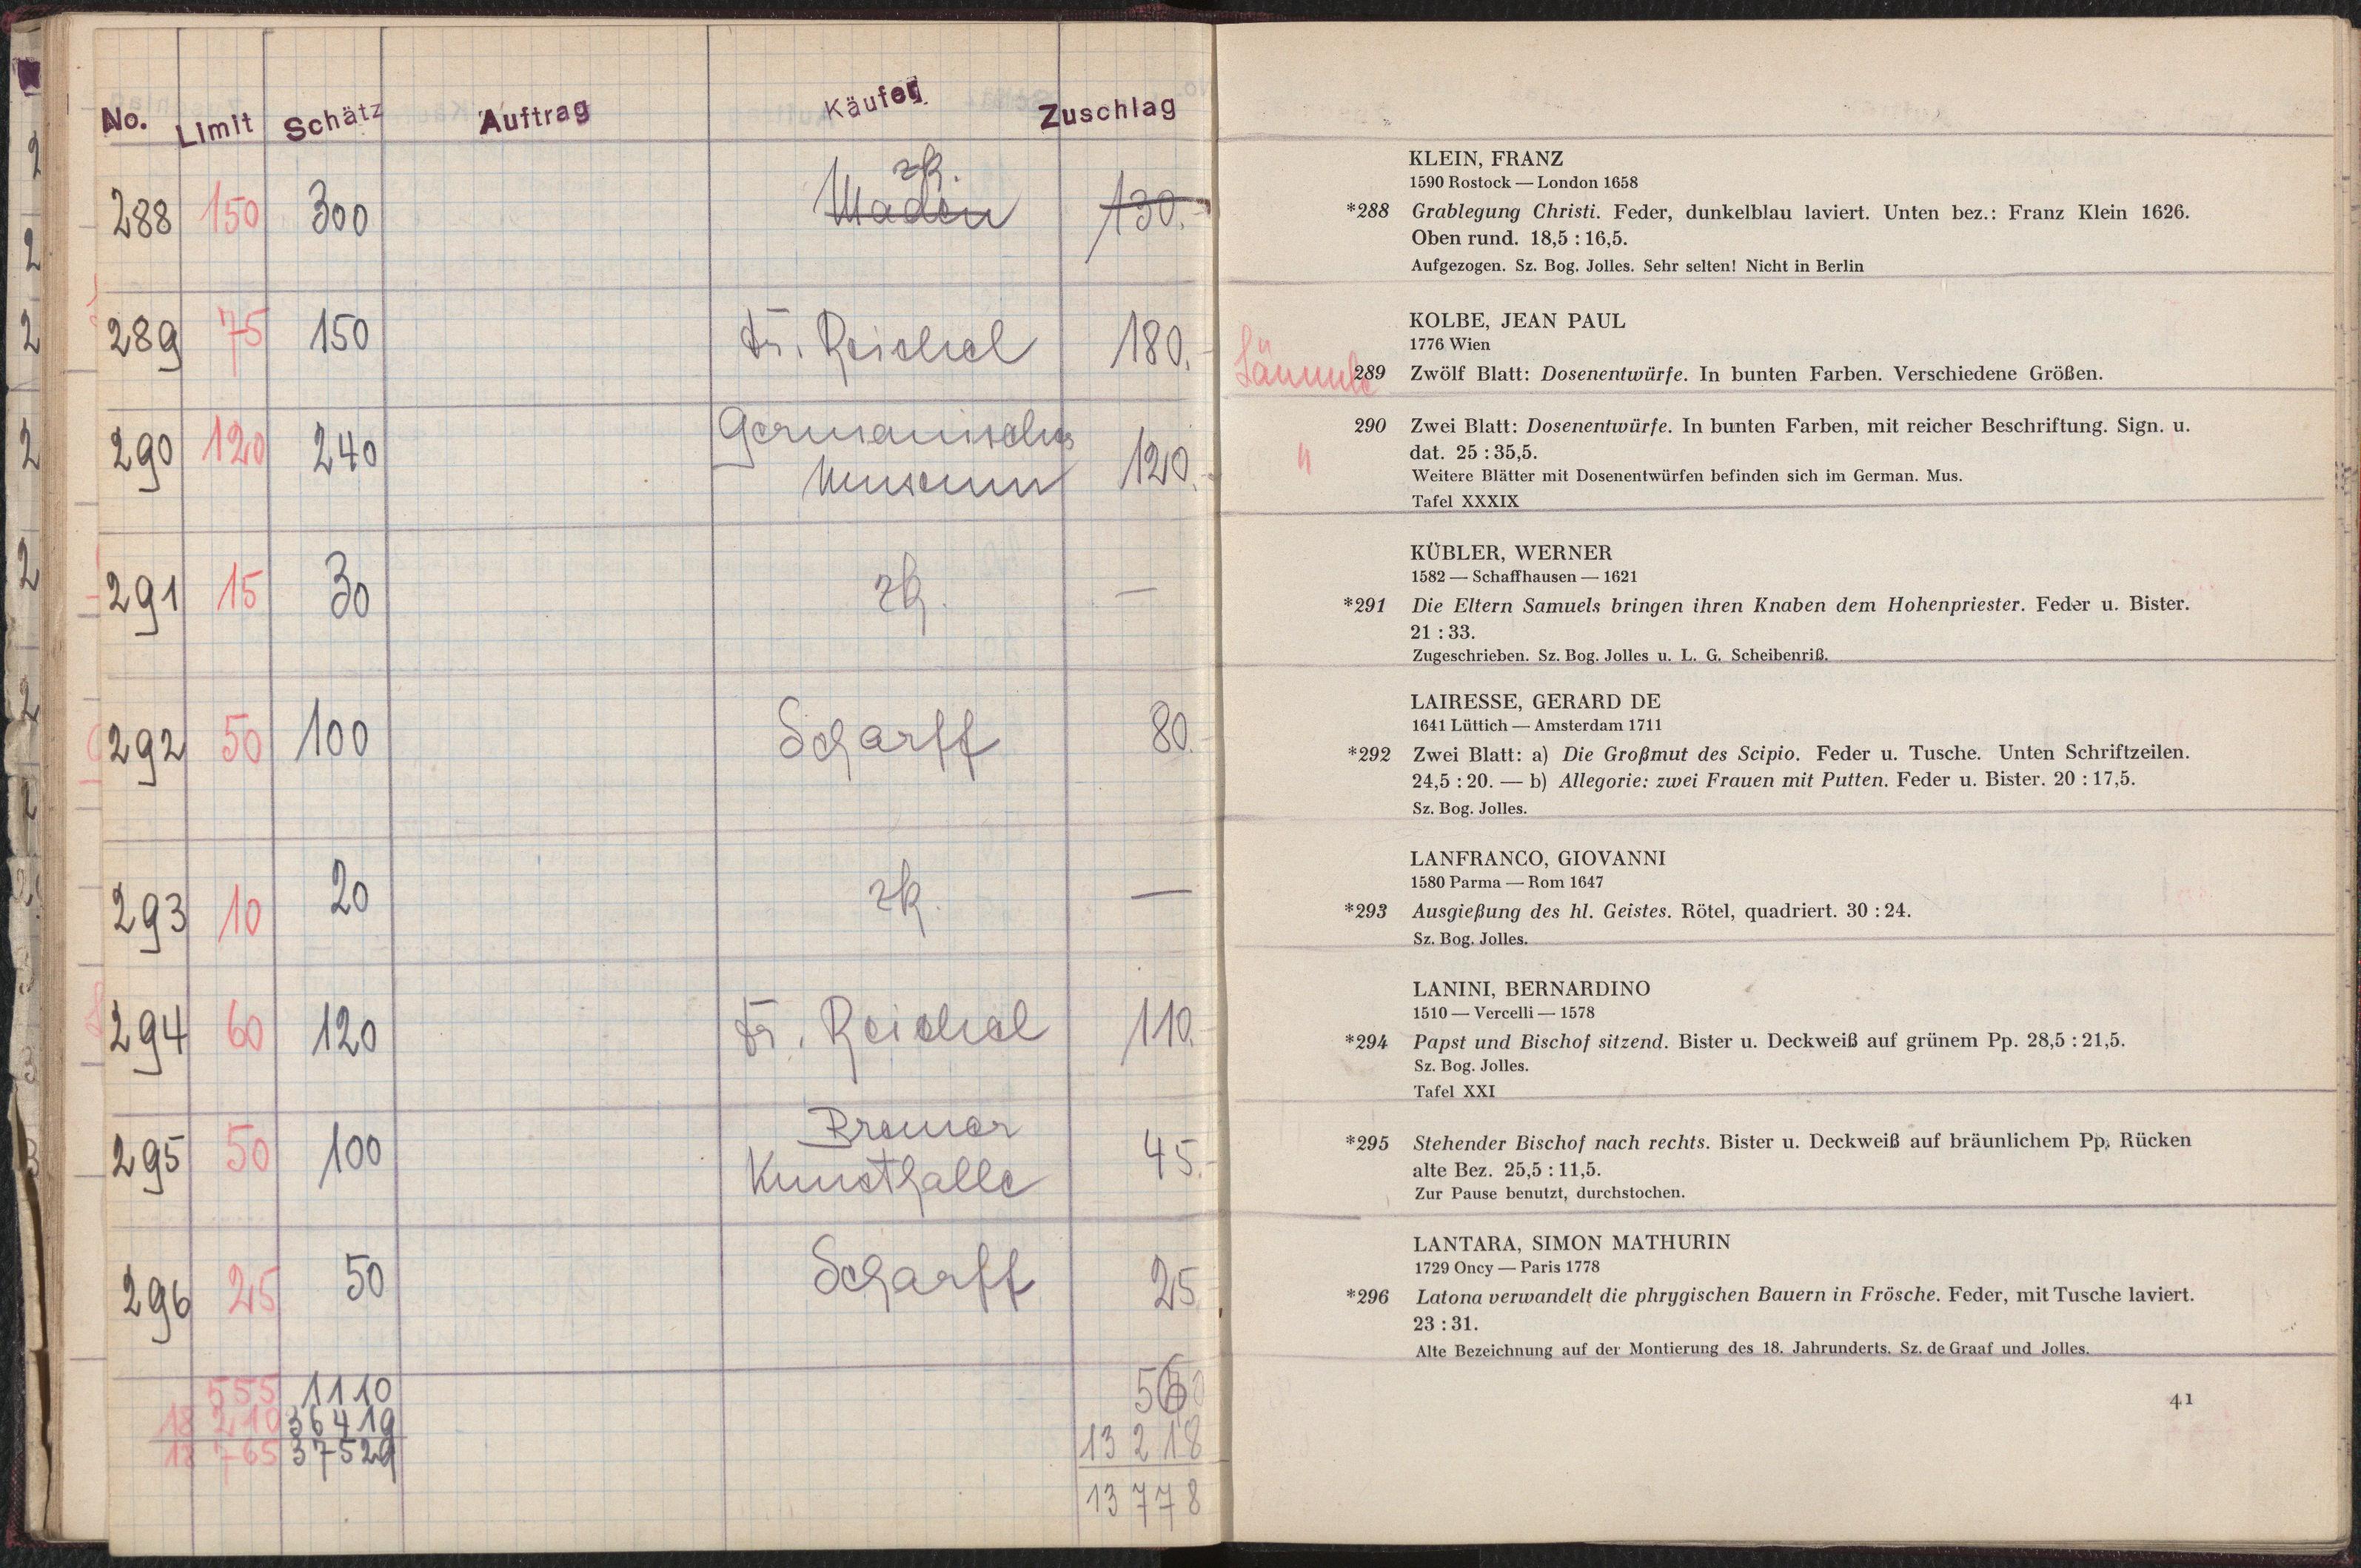 No. Limit Schätz Auftrag Käufer Zuschlag
zk.
288 150 300 Maden 130.-
289 75 150 Dr. Reichel 180.-
290 120 240 Germanisches
Museum 120.-
291 15 30 zk. —
292 50 100 Scharff 80.-
293 10 20 zk. —
294 60 120 Dr. Reichel 110.-
295 50 100 Bremer
Kunsthalle 45.-
296 25 50 Scharff 25.
555 1110 560
18 210 36419 13 218
18 765 37529 13 778
KLEIN, FRANZ
1590 Rostock — London 1658
*288 Grablegung Christi. Feder, dunkelblau laviert. Unten bez.: Franz Klein 1626.
Oben rund. 18,5 : 16,5.
Aufgezogen. Sz. Bog. Jolles. Sehr selten! Nicht in Berlin
KOLBE, JEAN PAUL
1776 Wien
289 Zwölf Blatt: Dosenentwürfe. In bunten Farben. Verschiedene Größen.
290 Zwei Blatt: Dosenentwürfe. In bunten Farben, mit reicher Beschriftung. Sign. u.
dat. 25 : 35,5.
Weitere Blätter mit Dosenentwürfen befinden sich im German. Mus.
Tafel XXXIX
KÜBLER, WERNER
1582 — Schaffhausen — 1621
*291 Die Eltern Samuels bringen ihren Knaben dem Hohenpriester. Feder u. Bister.
21 : 33.
Zugeschrieben. Sz. Bog. Jolles u. L. G. Scheibenriß.
LAIRESSE, GERARD DE
1641 Lüttich — Amsterdam 1711
*292 Zwei Blatt: a) Die Großmut des Scipio. Feder u. Tusche. Unten Schriftzeilen.
24,5 : 20. — b) Allegorie: zwei Frauen mit Putten. Feder u. Bister. 20 : 17,5.
Sz. Bog. Jolles.
LANFRANCO, GIOVANNI
1580 Parma — Rom 1647
*293 Ausgießung des hl. Geistes. Rötel, quadriert. 30 : 24.
Sz. Bog. Jolles.
LANINI, BERNARDINO
1510 — Vercelli — 1578
*294 Papst und Bischof sitzend. Bister u. Deckweiß auf grünem Pp. 28,5 : 21,5.
Sz. Bog. Jolles.
Tafel XXI
*295 Stehender Bischof nach rechts. Bister u. Deckweiß auf bräunlichem Pp. Rücken
alte Bez. 25,5 : 11,5.
Zur Pause benutzt, durchstochen.
LANTARA, SIMON MATHURIN
1729 Oncy — Paris 1778
*296 Latona verwandelt die phrygischen Bauern in Frösche. Feder, mit Tusche laviert.
23 : 31.
Alte Bezeichnung auf der Montierung des 18. Jahrhunderts. Sz. de Graaf und Jolles.
41